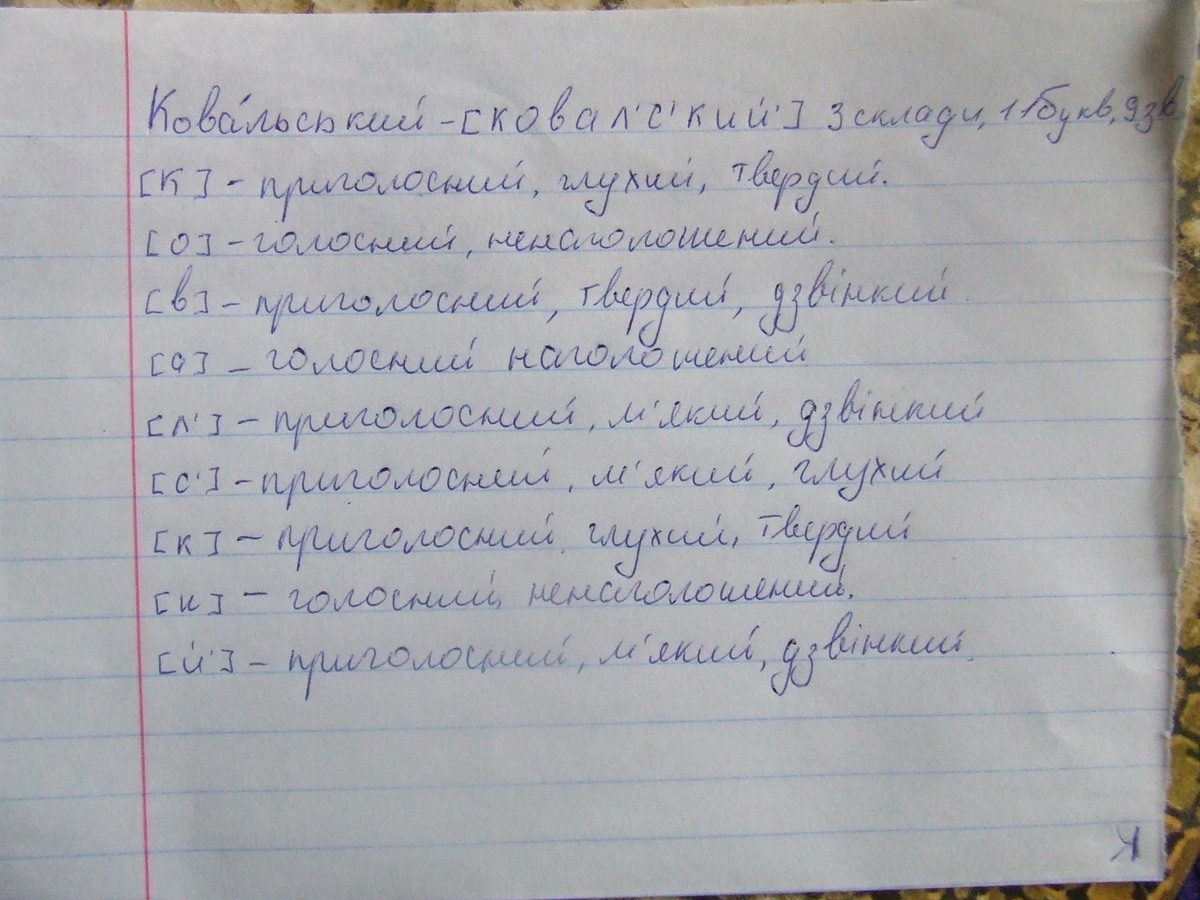 Кова́льський - [ковал'с'кий'] 3 склади, 11 букв, 9 зв
[к] - приголосний, глухий, твердий.
[о] - голосний, ненаголошений.
[в] - приголосний, твердий, дзвінкий.
[а] - голосний наголошений
[л'] - приголосний, м'який, дзвінкий
[с'] - приголосний, м'який, глухий
[к] - приголосний, глухий, твердий
[и] - голосний, ненаголошений.
[й'] - приголосний, м'який, дзвінкий.
Я